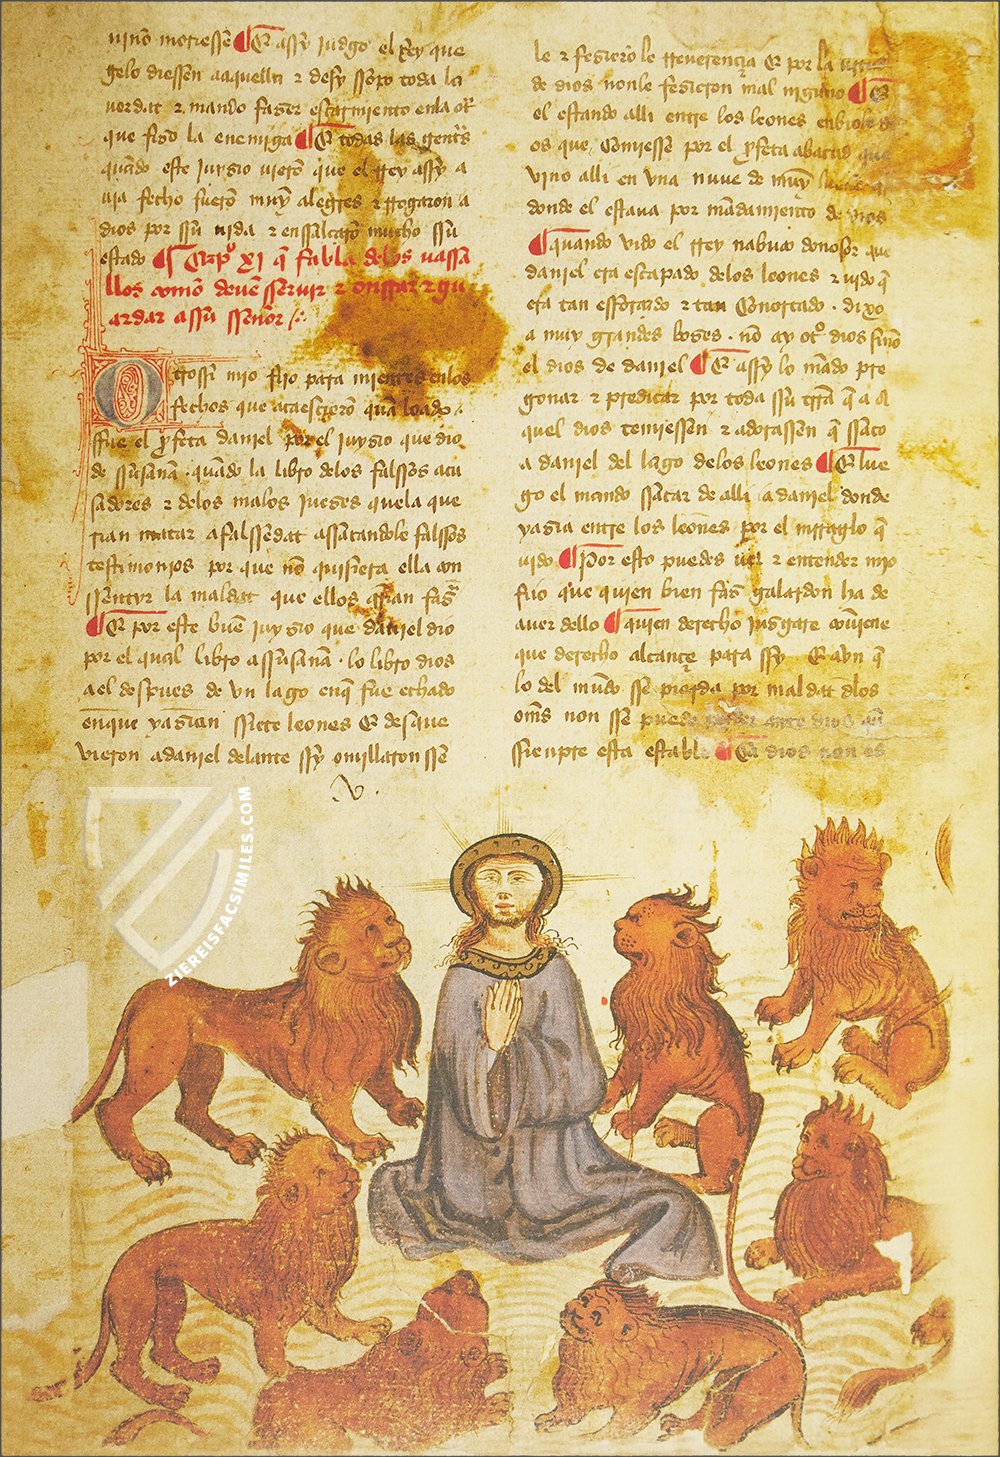 vino moriessen ¶ E assy judgo el rrey que
gelo diessen aaquella τ desy ssopo toda la
uerdat τ mando faser escarmiento enla ot̃
que fiso la enemiga ¶ E todas las gent̃s
quãdo este juysio vierõ que el rrey assy a
uja fecho fuerõ muy alegres τ rrogaron a
dios por ssu vida τ enssalçarõ mucho ssu
estado ¶ Capº xj q̃ fabla delos uassa
llos commo deuẽ sseruir τ onrrar τ gu
ardar assu ssenor
Otrossi mjo fijo para mientes enlos
fechos que acaesçierõ quã loado
ffue el ꝓfeta daniel por el juysio que dio
de ssusana · quãdo la libro delos falssos acu
sadores τ delos malos jueses quela que
rian matar afalssedat assacandole falssos
testimonjos por que nõ quisiera ella con
ssentyr la maldat que ellos q̃rian fas̃
¶ E por este buẽ juysio que daniel dio
por el qual libro assusana · lo libro dios
ael despues de vn lago enq̃ fue echado
enque yasian ssiete leones E desque
vieron adaniel delante ssy omillaron sse
le τ fesierõ le rreuerençia E por la
de dios nonle fesieron mal njguno ¶ E
el estando alli entre los leones enbiole di
os que comiesse por el ꝓfeta abacud que
vino alli en vna nuue de muy
donde el estaua por mãdamiento de dios
¶ quando vido el rrey nabuco donosor que
daniel era escapado delos leones τ vido q̃
era tan esforçado τ tan conortado · dixo
a muy grandes boses · nõ ay otº dios sinõ
el dios de daniel ¶ E assy lo mãdo pre
gonar τ predicar por toda ssu tr̃ra q̃ a a
quel dios temiessen τ adorassen q̃ ssaco
a daniel del lago delos leones ¶ E lue
go el mando ssacar de alli a daniel donde
yasia entre los leones por el miraglo q̃
vido ¶ Por esto puedes uer τ entender mjo
fijo que quien bien fas̃ galardon ha de
auer dello ¶ quien derecho jusgare cõuiene
que derecho alcançe para ssy E avn q̃
lo del mũdo sse pierda por maldat dlos
om̃s non sse puede perder ante dios
sienpre esta estable ¶ Ca dios non es
ZIEREISFACSIMILES.COM